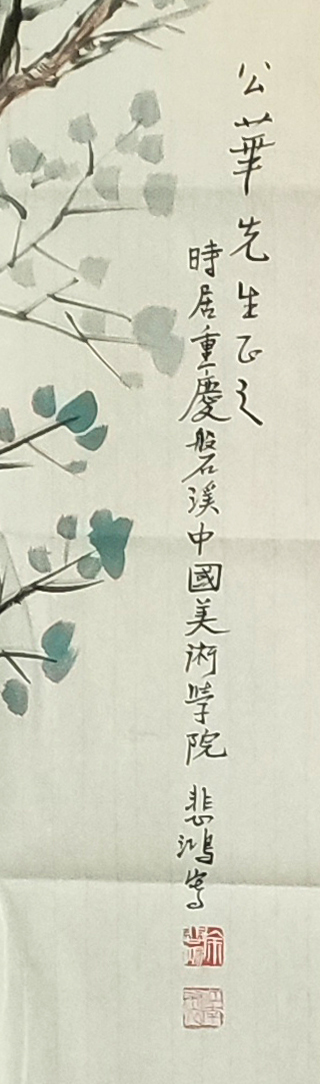 公華先生正之
時居重慶磐石溪中國美術學院 悲鴻寫